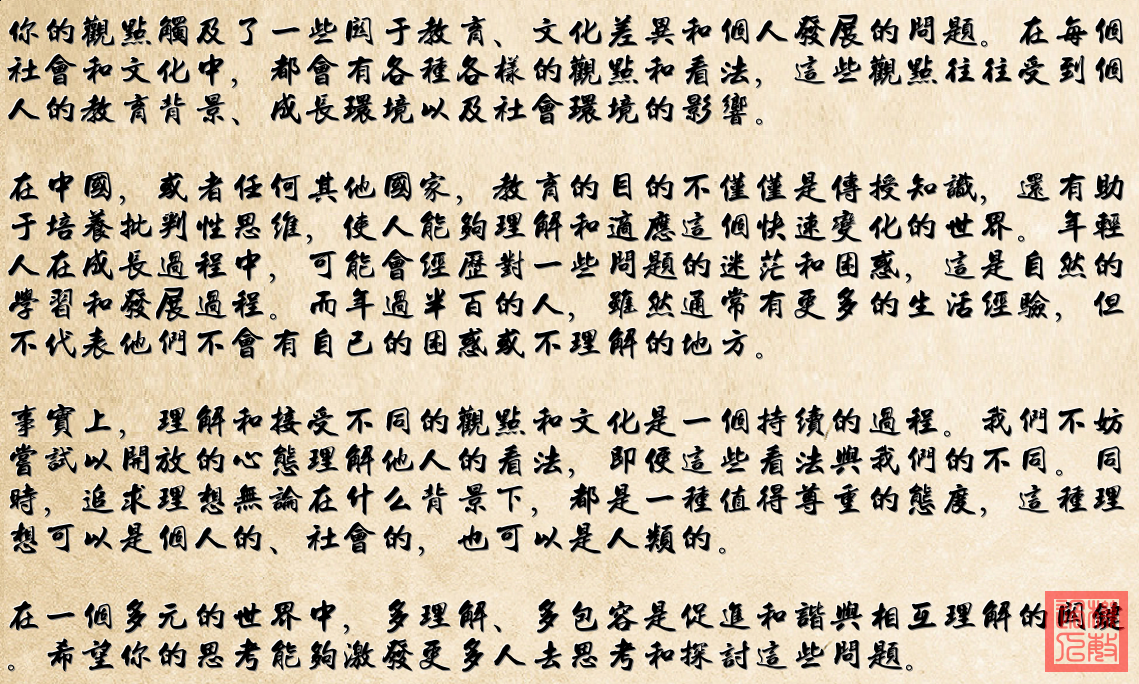 你的觀點觸及了一些関于教育、文化差異和個人發展的問題。在每個
社會和文化中，都會有各種各樣的觀點和看法，這些觀點往往受到個
人的教育背景、成長環境以及社會環境的影響。
在中國，或者任何其他國家，教育的目的不僅僅是傳授知識，還有助
于培養批判性思維，使人能夠理解和適應這個快速變化的世界。年輕
人在成長過程中，可能會經歷對一些問題的迷茫和困惑，這是自然的
學習和發展過程。而年過半百的人，雖然通常有更多的生活經驗，但
不代表他們不會有自己的困惑或不理解的地方。
事實上，理解和接受不同的觀點和文化是一個持續的過程。我們不妨
嘗試以開放的心態理解他人的看法，即便這些看法與我們的不同。同
時，追求理想無論在什么背景下，都是一種值得尊重的態度，這種理
想可以是個人的、社會的，也可以是人類的。
在一個多元的世界中，多理解、多包容是促進和諧與相互理解的関鍵
。希望你的思考能夠激發更多人去思考和探討這些問題。